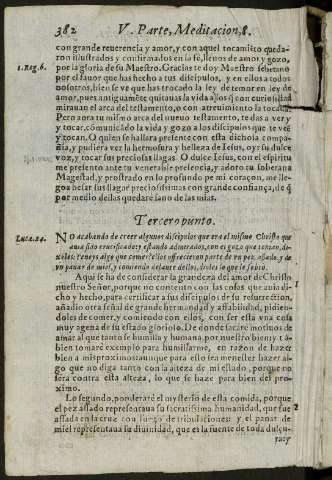 382 V. Parte, Meditacion, 8.
con grande reuerencia y amor, y con aquel tocamiẽto queda-
ron illustrados y confirmados en la fè, llenos de amor y gozo,
por la gloria de su Maestro. Gracias te doy Maestro soberano
por el fauor que has hecho a tus discipulos, y en ellos a todos
1. Reg. 6.
nosotros, bien se ve que has trocado la ley de temor en ley de
amor, pues antiguamẽte quitauas la vida a los q̃ con curiosidad
mirauan el arca del testamento, o con atreuimiento la tocauã.
Pero aora tu mismo arca del nueuo testamento, te das a ver y
tocar, comunicãdo la vida y gozo a los discipulos que te veẽ
y tocan. O quien se hallara presente con esta dichosa compa-
ñia, y pudiera ver la hermosura y belleza de Iesus, oyr su dulce
voz, y tocar sus preciosas llagas. O dulce Iesus, con el espiritu
me presento ante tu venerable presencia, y adoro tu soberana
Magestad, y prostrado en lo profundo de mi coraçon, me lle-
go a besar sus llagas preciosissimas con grande confiança, de q̃
por medio dellas quedarè sano de las mias.
Tercero punto.
Luca. 24.
NO acabando de creer algunos discipulos que era el mismo Christo que
auia sido crucificado; y estando admirados, con el gozo que tenian, di-
xoles: Teneys algo que comer? ellos ofrecieron parte de vn pez assado, y de
vn panar de miel, y comiendo delante dellos, dioles lo que le sobró.
Aqui se ha de considerar la grandeza del amor de Christo
1
nuestro Señor, porque no contento con las cosas que auia di-
cho y hecho, para certificar a sus discipulos de su resurrection,
añadio otra señal de grande hermandad y affabilidad, pidien-
doles de comer, y comiendo con ellos, con ser esta vna cosa
muy agena de su estado glorioso. De donde sacarè motiuos de
amar al que tanto se humilla y humana, por nuestro bien; y tã-
bien tomarè exemplo para humillarme, en razon de hazer
bien a mis proximos: aunque para esto sea menester hazer al-
go que no diga tanto con la alteza de mi estado, porque no
sera contra esta alteza, lo que se haze para bien del pro-
ximo.
Lo segundo, ponderarè el mysterio de esta comida, porque
2
el pez assado representaua su sacratissima humanidad, que fue
assada en la cruz con fuego de tribulaciones: y el panar de
miel representaua su diuinidad, que es la fuente de toda dulçu-
ra: y